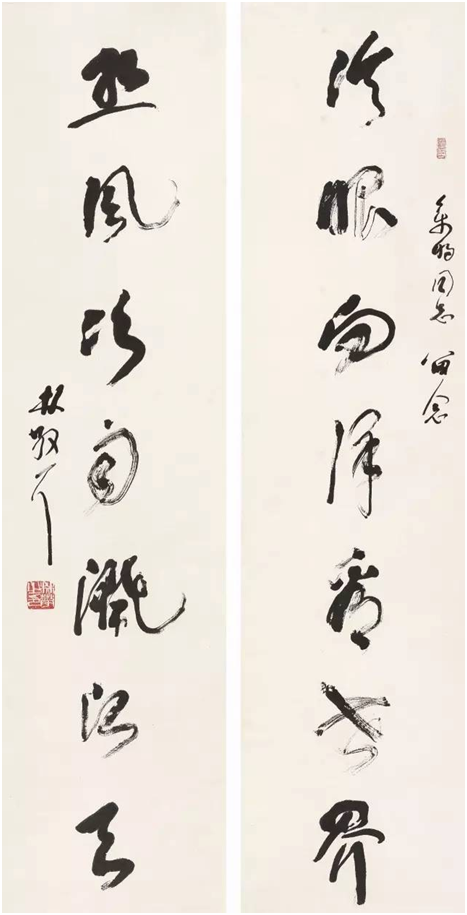 冷眼向洋看世界
同志留念
热风吹雨灑江天
林散耳